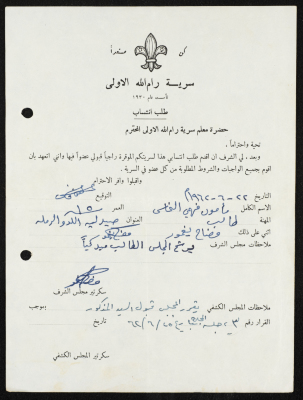 كن مستعداً
سرية رام الله الاولى
تأسست عام ١٩٢٠
طلب انتساب
حضرة معلم سرية رام الله الاولى المحترم
تحية واحتراماً ،
وبعد ، لي الشرف ان اقدم طلب انتسابي هذا لسريتكم الموقرة راجياً قبولي عضواً فيها وانني اتعهد بان
اقوم بجميع الواجبات والشروط المطلوبة من كل عضو في السرية .
واقبلوا وافر الاحترام
التوقيع
التاريخ ٢٢-٦-١٩٦٢م
الاسم الكامل مأمون فهمي
العمر
المهنة طالب
العنوان صيدلية اللد والرملة
اثنى على ذلك
ملاحظات مجلس الشرف يوشح المجلس الطالب
سكرتير مجلس الشرف
ملاحظات المجلس الكشفي يقرر المجلس قبول السيد المذكور بموجب
القرار رقم ٣ جلسة تاريخ ٦٢/٦/
سكرتير المجلس الكشفي